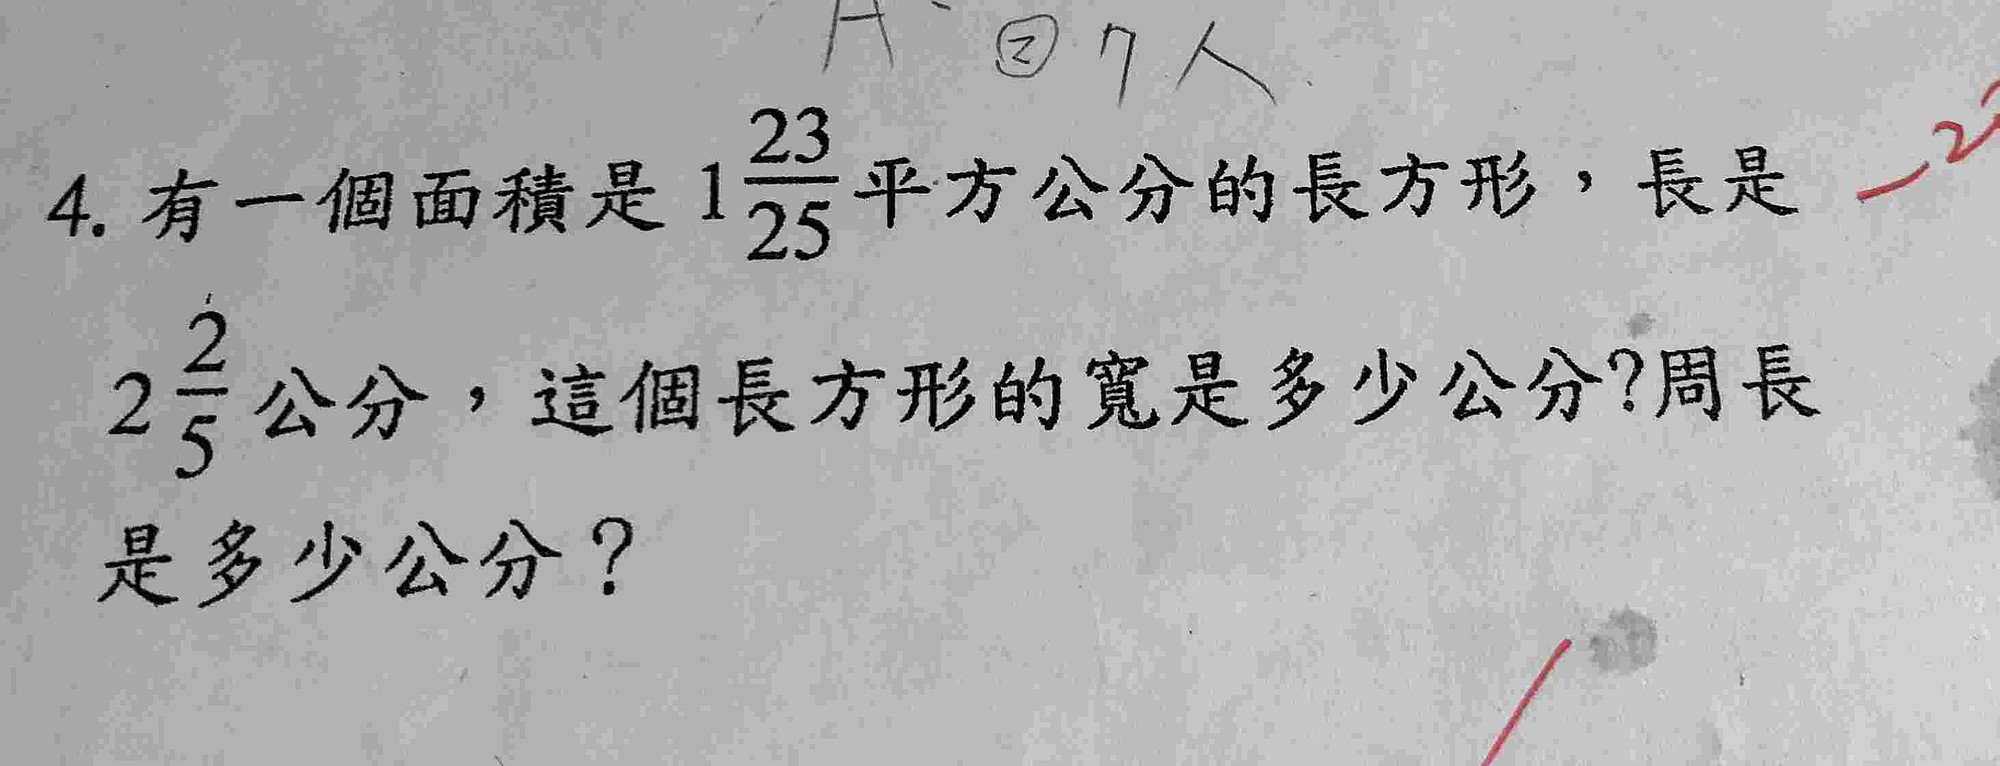 A ② 7人
4. 有一個面積是 1 23/25 平方公分的長方形，長是
2 2/5 公分，這個長方形的寬是多少公分?周長
是多少公分？